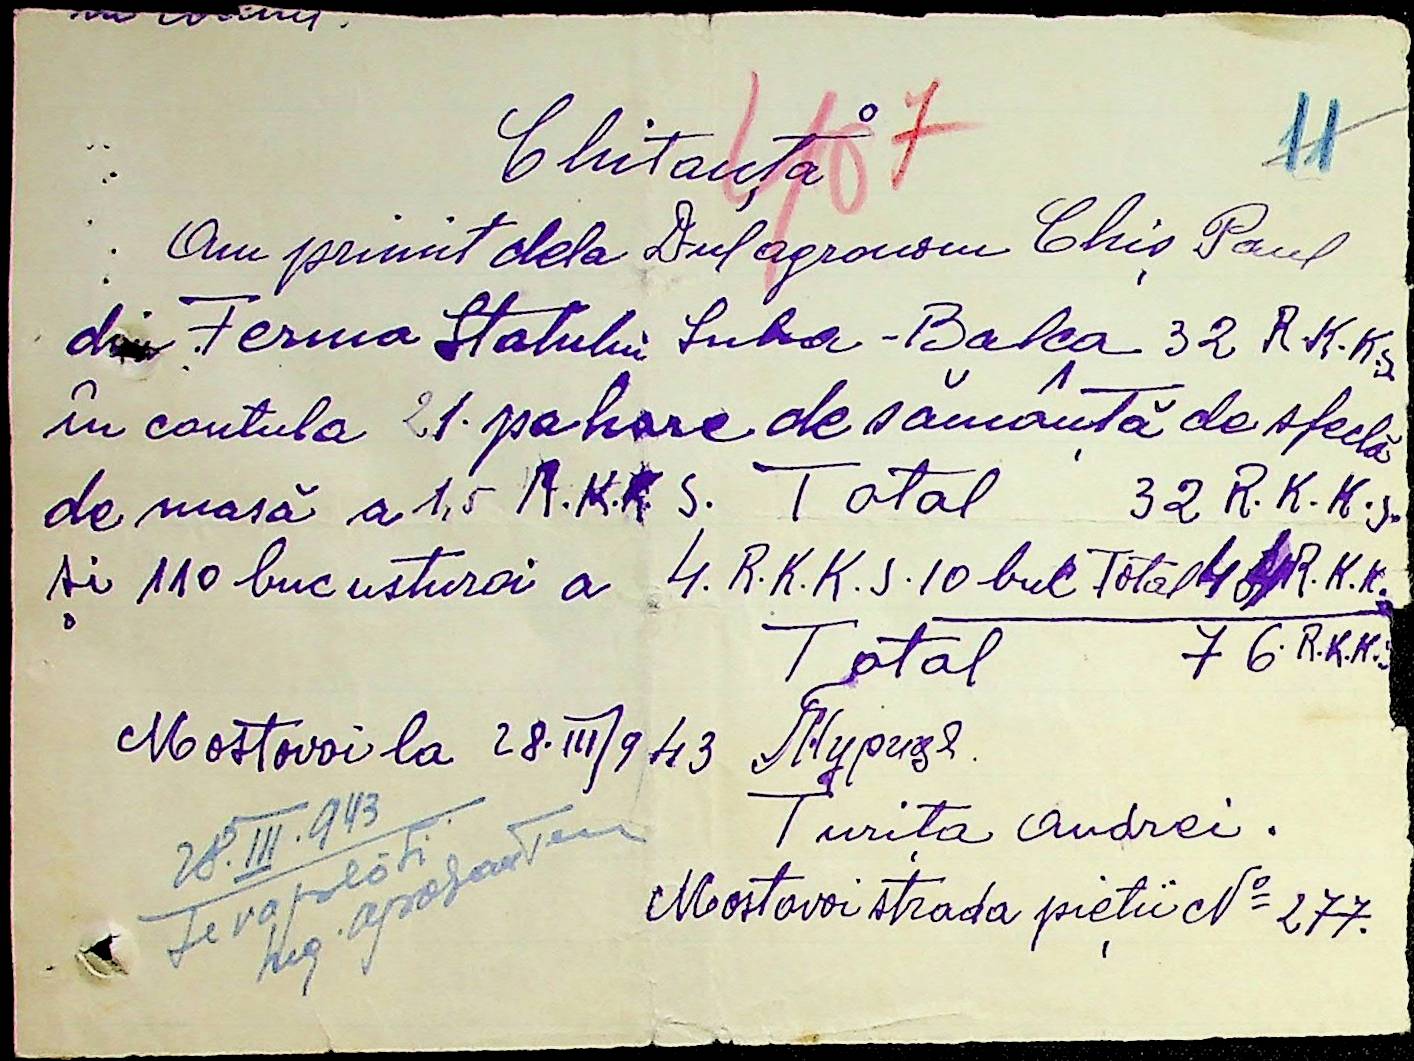 407
11
Chitanță
Am primit dela Dul agronom Chiș Paul
din Ferma Statului Suha-Balca 32 R.K.K.S
în contula 21. pahare de sămânță de sfeclă
de masă a 1,5 R.K.K.S. Total 32 R.K.K.S.
și 110 buc usturoi a 4. R.K.K.S. 10 buc Total 44 R.K.K.
Total 76 R.K.K.S
Mostovoi la 28.III/943 Турица.
Turița Andrei.
Mostovoi strada pieții No 277.
28.III.943
Se va plăti
Ing.